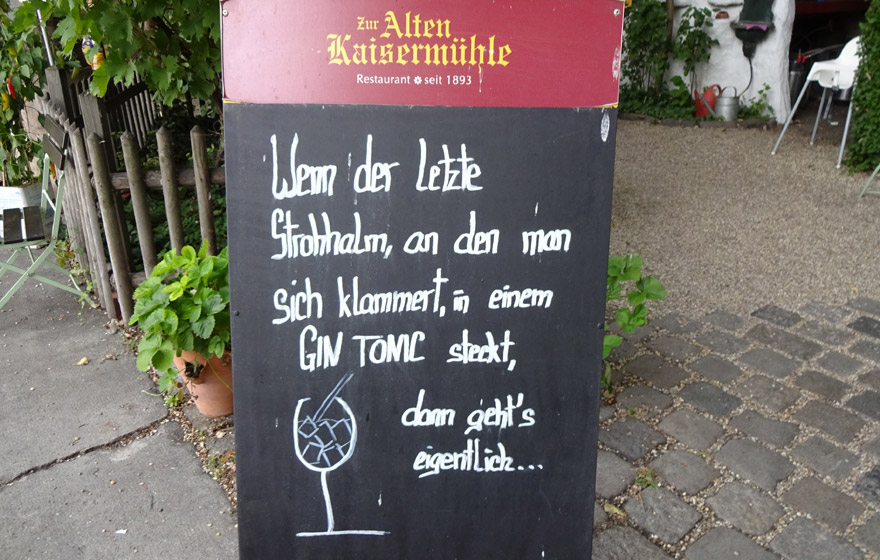 Zur Alten
Kaisermühle
Restaurant seit 1893
Wenn der letzte
Strohhalm, an den man
sich klammert, in einem
GIN TONIC steckt,
dann geht's
eigentlich...